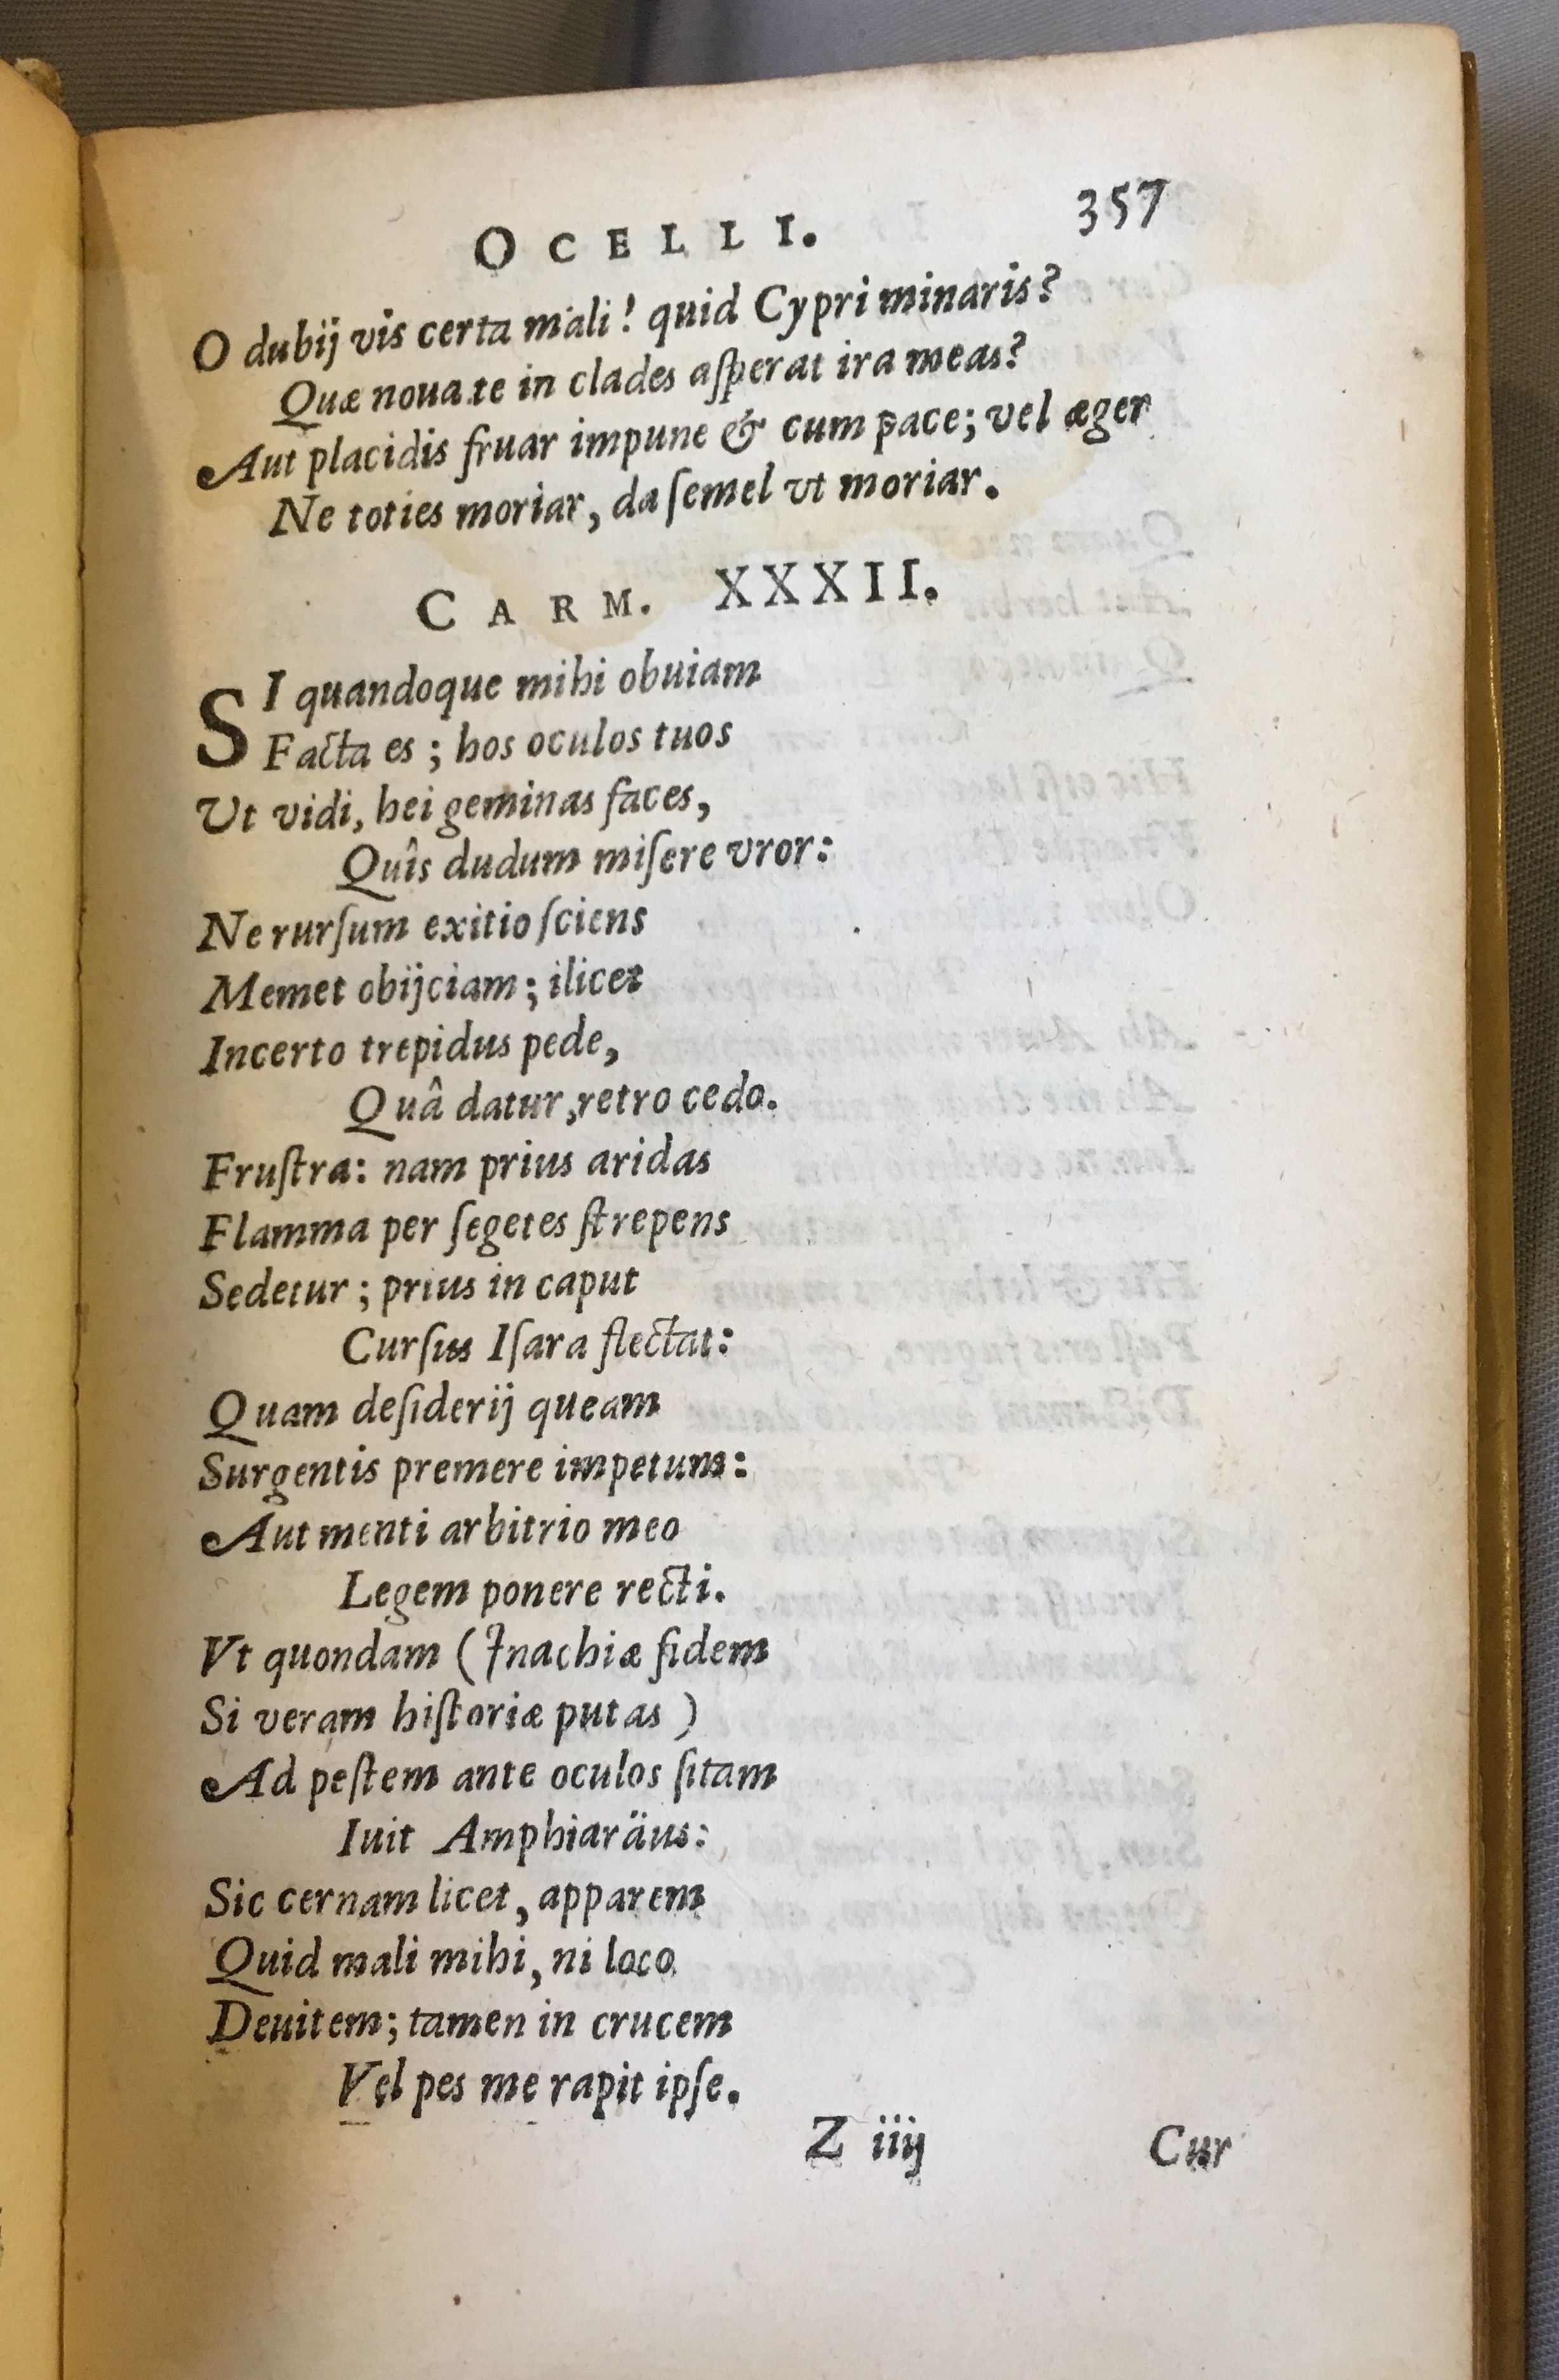 OCELLI. 357
O dubij vis certa mali! quid Cypri minaris?
Quæ noua te in clades aſperat ira meas?
Aut placidis fruar impune & cum pace; vel æger
Ne toties moriar, da ſemel vt moriar.
CARM. XXXII.
SI quandoque mihi obuiam
Facta es; hos oculos tuos
Ut vidi, hei geminas faces,
Quîs dudum miſere vror:
Ne rurſum exitio ſciens
Memet obijciam; ilicet
Incerto trepidus pede,
Quâ datur, retro cedo.
Fruſtra: nam prius aridas
Flamma per ſegetes ſtrepens
Sedetur; prius in caput
Curſus Iſara flectat:
Quam deſiderij queam
Surgentis premere impetum:
Aut menti arbitrio meo
Legem ponere recti.
Vt quondam (Inachiæ fidem
Si veram hiſtoriæ putas)
Ad peſtem ante oculos ſitam
Iuit Amphiaräus:
Sic cernam licet, apparem
Quid mali mihi, ni loco
Deuitem; tamen in crucem
Vel pes me rapit ipſe.
Z iiij Cur